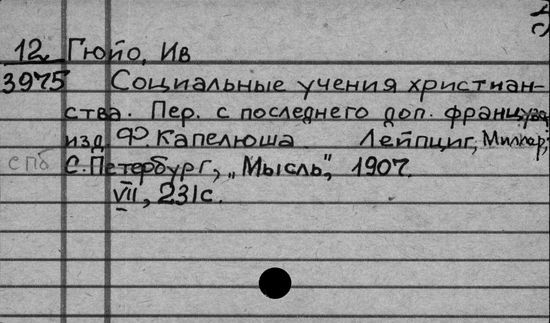 12 Гюйо, Ив
3975 Социальные учения христиан-
ства. Пер. с последнего доп. француз.
изд. Ф. Капелюша. Лейпциг, Миллер,
спб С. Петербург, „Мысль", 1907.
VII, 231 с.